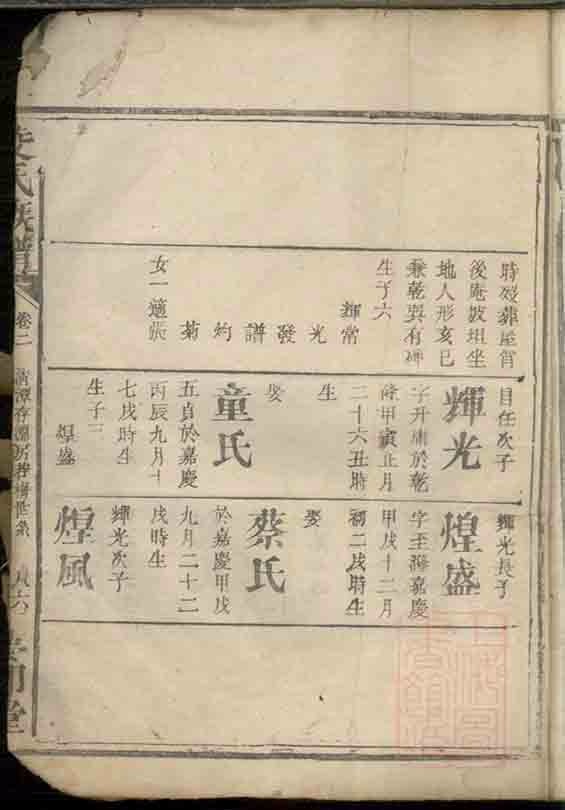 時歿葬屋背
後庵敼坦坐
地人形亥巳
兼乾與有碑
生子六
輝常
光
發
譜
約
菊
女一適張
目任次子
輝光
字升庸於乾
隆甲寅正月
二十六丑時
生
娶
童氏
五貞於嘉慶
丙辰九月十
七戌時生
生子三
煌盛
輝光長子
煌盛
字玉海嘉慶
甲戌十二月
初二戌時生
娶
蔡氏
於嘉慶甲戌
九月二十二
戌時生
輝光次子
煌風
氏族譜
卷二
世系